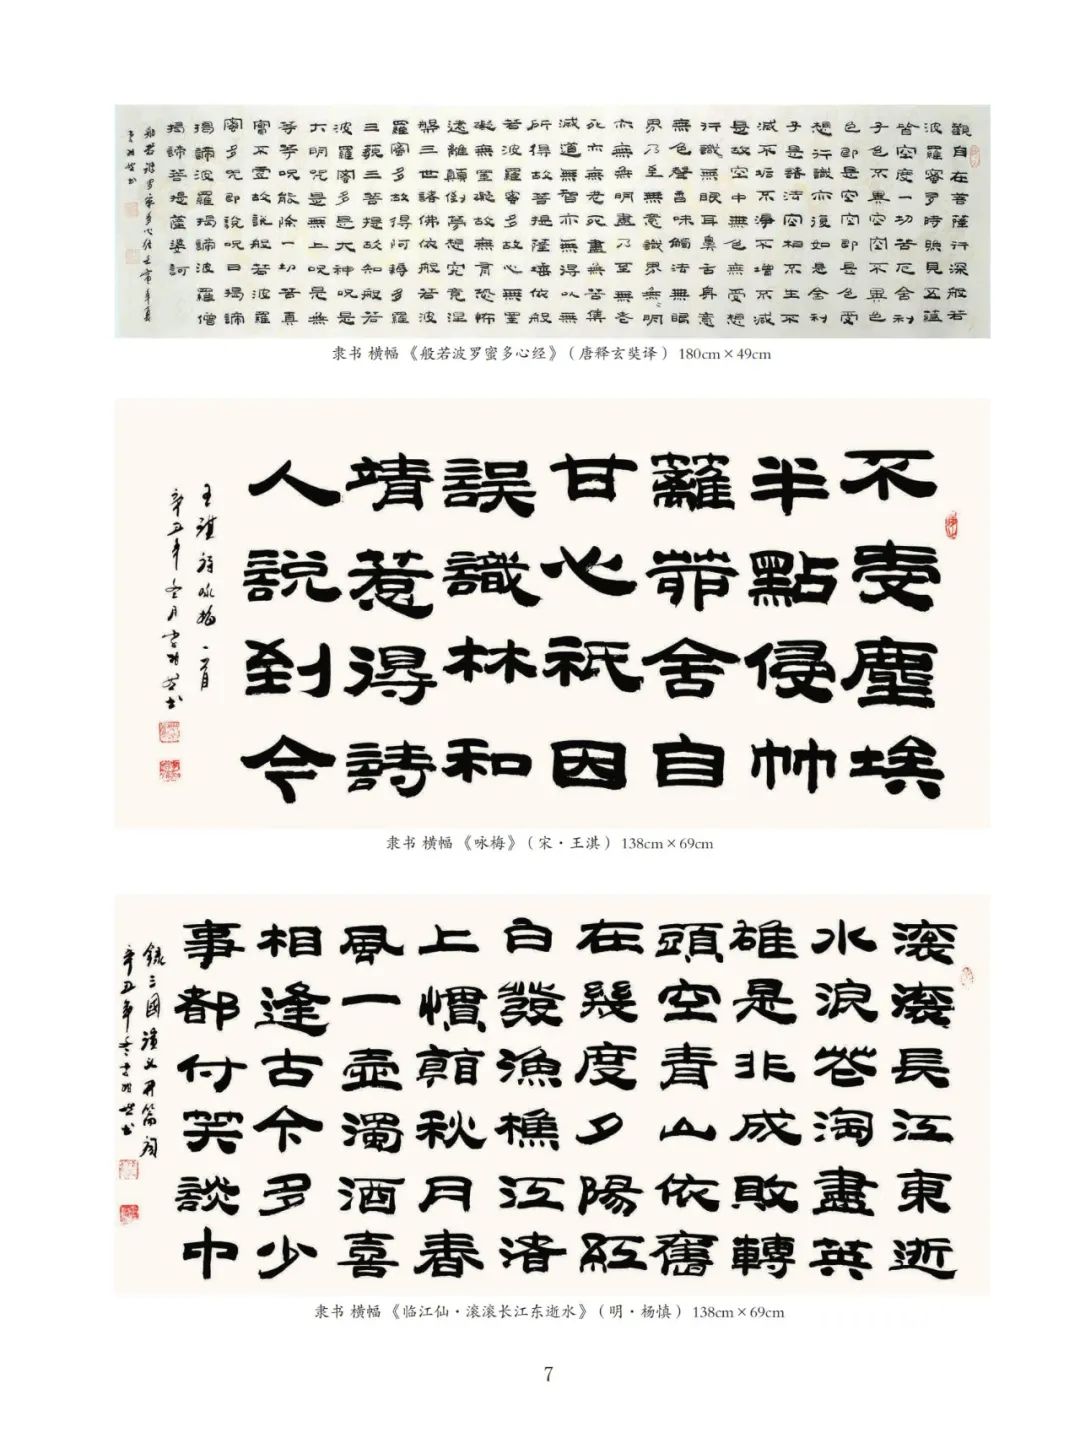 觀自在菩薩行深般若
波羅蜜多時照見五蘊
皆空度一切苦厄舍利
子色不異空空不異色
色即是空空即是色受
想行識亦復如是舍利
子是諸法空相不生不
滅不垢不淨不增不減
是故空中無色無受想
行識無眼耳鼻舌身意
無色聲香味觸法無眼
界乃至無意識界無無明
亦無無明盡乃至無老
死亦無老死盡無苦集
滅道無智亦無得以無
所得故菩提薩埵依般
若波羅蜜多故心無罣
礙無罣礙故無有恐怖
遠離顛倒夢想究竟涅
槃三世諸佛依般若波
羅蜜多故得阿耨多羅
三藐三菩提故知般若
波羅蜜多是大神咒是
大明咒是無上咒是無
等等咒能除一切苦真
實不虛故說般若波羅
蜜多咒即說咒曰揭諦
揭諦波羅揭諦波羅僧
揭諦菩提薩婆訶
般若波罗蜜多心经壬寅年夏
隶书 横幅 《般若波罗蜜多心经》（唐释玄奘译） 180cm×49cm
不受塵埃
半點侵竹
籬茆舍自
甘心祇因
誤識林和
靖惹得詩
人說到今
王淇詩咏梅一首
辛丑年冬月
隶书 横幅 《咏梅》（宋·王淇） 138cm×69cm
滾滾長江東逝
水浪花淘盡英
雄是非成敗轉
頭空青山依舊
在幾度夕陽紅
白發漁樵江渚
上慣看秋月春
風一壺濁酒喜
相逢古今多少
事都付笑談中
錄三國演义开篇词
辛丑年冬
隶书 横幅 《临江仙·滚滚长江东逝水》（明·杨慎） 138cm×69cm
7